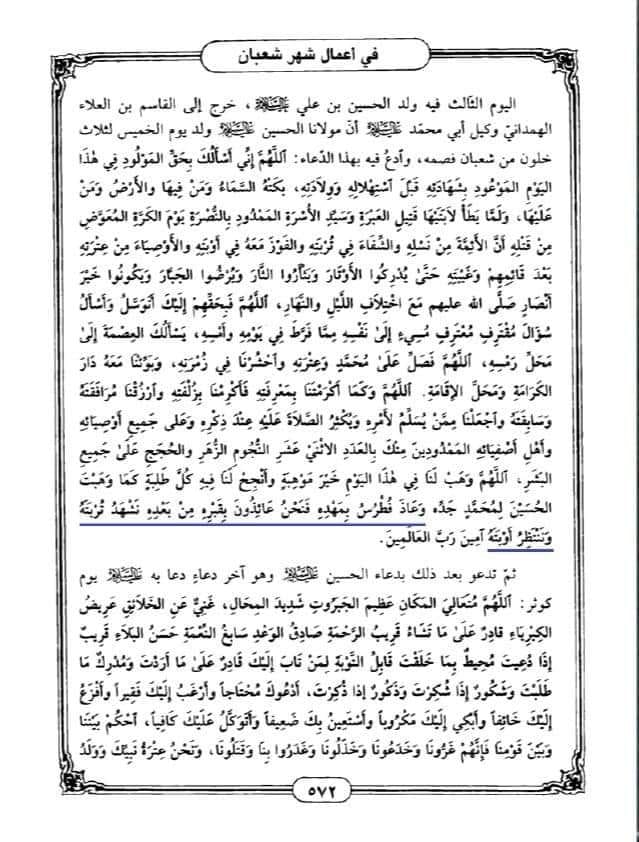 في أعمال شهر شعبان
اليوم الثالث فيه ولد الحسين بن علي عليه السلام، خرج إلى القاسم بن العلاء
الهمدانيّ وكيل أبي محمّد عليه السلام أنّ مولانا الحسين عليه السلام ولد يوم الخميس لثلاث
خلون من شعبان فصمه، وأدعُ فيه بهذا الدعاء: اَللّهُمَّ إِنِّي أَسْأَلُكَ بِحَقِّ المَوْلُودِ فِي هٰذَا
اليَوْمِ المَوْعُودِ بِشَهَادَتِهِ قَبْلَ اسْتِهْلَالِهِ وَوِلَادَتِهِ، بَكَتْهُ السَّمَاءُ وَمَنْ فِيهَا والأَرْضُ وَمَنْ
عَلَيْهَا، وَلَمَّا يَطَأْ لَابَتَيْهَا قَتِيلِ العَبْرَةِ وَسَيِّدِ الأُسْرَةِ المَمْدُودِ بِالنُّصْرَةِ يَوْمَ الكَرَّةِ المُعَوَّضِ
مِنْ قَتْلِهِ أَنَّ الأَئِمَّةَ مِنْ نَسْلِهِ والشِّفَاءَ فِي تُرْبَتِهِ والفَوْزَ مَعَهُ فِي أَوْبَتِهِ والأَوْصِيَاءَ مِنْ عِتْرَتِهِ
بَعْدَ قَائِمِهِمْ وَغَيْبَتِهِ حَتَّىٰ يُدْرِكُوا الأَوْتَارَ وَيَثْأَرُوا الثَّارَ وَيُرْضُوا الجَبَّارَ وَيَكُونُوا خَيْرَ
أَنْصَارٍ صَلَّى الله عليهم مَعَ اخْتِلَافِ اللَّيْلِ والنَّهَارِ، اَللّهُمَّ فَبِحَقِّهِمْ إِلَيْكَ أَتَوَسَّلُ وَأَسْأَلُ
سُؤَالَ مُقْتَرِفٍ مُعْتَرِفٍ مُسِيءٍ إِلَىٰ نَفْسِهِ مِمَّا فَرَّطَ فِي يَوْمِهِ وَأَمْسِهِ، يَسْأَلُكَ العِصْمَةَ إِلَىٰ
مَحَلِّ رَمْسِهِ، اَللّهُمَّ فَصَلِّ عَلَىٰ مُحَمَّدٍ وَعِتْرَتِهِ وَاحْشُرْنَا فِي زُمْرَتِهِ، وَبَوِّئْنَا مَعَهُ دَارَ
الكَرَامَةِ وَمَحَلَّ الإِقَامَةِ. اَللّهُمَّ وَكَمَا أَكْرَمْتَنَا بِمَعْرِفَتِهِ فَأَكْرِمْنَا بِزُلْفَتِهِ وَارْزُقْنَا مُرَافَقَتَهُ
وَسَابِقَتَهُ وَاجْعَلْنَا مِمَّنْ يُسَلِّمُ لِأَمْرِهِ وَيُكْثِرُ الصَّلَاةَ عَلَيْهِ عِنْدَ ذِكْرِهِ وَعَلى جَمِيعِ أَوْصِيَائِهِ
وَأَهْلِ أَصْفِيَائِهِ المَمْدُودِينَ مِنْكَ بِالعَدَدِ الاثْنَيْ عَشَرَ النُّجُومِ الزُّهَرِ والحُجَجِ عَلَىٰ جَمِيعِ
البَشَرِ، اَللّهُمَّ وَهَبْ لَنَا فِي هٰذَا اليَوْمِ خَيْرَ مَوْهِبَةٍ وَأَنْجِحْ لَنَا فِيهِ كُلَّ طَلِبَةٍ كَمَا وَهَبْتَ
الحُسَيْنَ لِمُحَمَّدٍ جَدِّهِ وَعَاذَ فُطْرُسُ بِمَهْدِهِ فَنَحْنُ عَائِذُونَ بِقَبْرِهِ مِنْ بَعْدِهِ نَشْهَدُ تُرْبَتَهُ
وَنَنْتَظِرُ أَوْبَتَهُ آمِينَ رَبَّ العَالَمِينَ.
ثمّ تدعو بعد ذلك بدعاء الحسين عليه السلام وهو آخر دعاءٍ دعا به عليه السلام يوم
كوثر: اَللّهُمَّ مُتَعَالِيَ المَكَانِ عَظِيمَ الجَبَرُوتِ شَدِيدَ المِحَالِ، غَنِيٌّ عَنِ الخَلَائِقِ عَرِيضُ
الكِبْرِيَاءِ قَادِرٌ عَلَىٰ مَا تَشَاءُ قَرِيبُ الرَّحْمَةِ صَادِقُ الوَعْدِ سَابِغُ النِّعْمَةِ حَسَنُ البَلَاءِ قَرِيبٌ
إِذَا دُعِيتَ مُحِيطٌ بِمَا خَلَقْتَ قَابِلُ التَّوْبَةِ لِمَنْ تَابَ إِلَيْكَ قَادِرٌ عَلَىٰ مَا أَرَدْتَ وَمُدْرِكٌ مَا
طَلَبْتَ وَشَكُورٌ إِذَا شُكِرْتَ وَذَكُورٌ إِذَا ذُكِرْتَ، أَدْعُوكَ مُحْتَاجاً وأَرْغَبُ إِلَيْكَ فَقِيراً وأَفْزَعُ
إِلَيْكَ خَائِفاً وأَبْكِي إِلَيْكَ مَكْرُوباً وأَسْتَعِينُ بِكَ ضَعِيفاً وأَتَوَكَّلُ عَلَيْكَ كَافِياً، اُحْكُمْ بَيْنَنَا
وَبَيْنَ قَوْمِنَا فَإِنَّهُمْ غَرُّونَا وَخَدَعُونَا وَخَذَلُونَا وَغَدَرُوا بِنَا وَقَتَلُونَا، وَنَحْنُ عِتْرَةُ نَبِيِّكَ وَوَلَدُ
٥٧٢